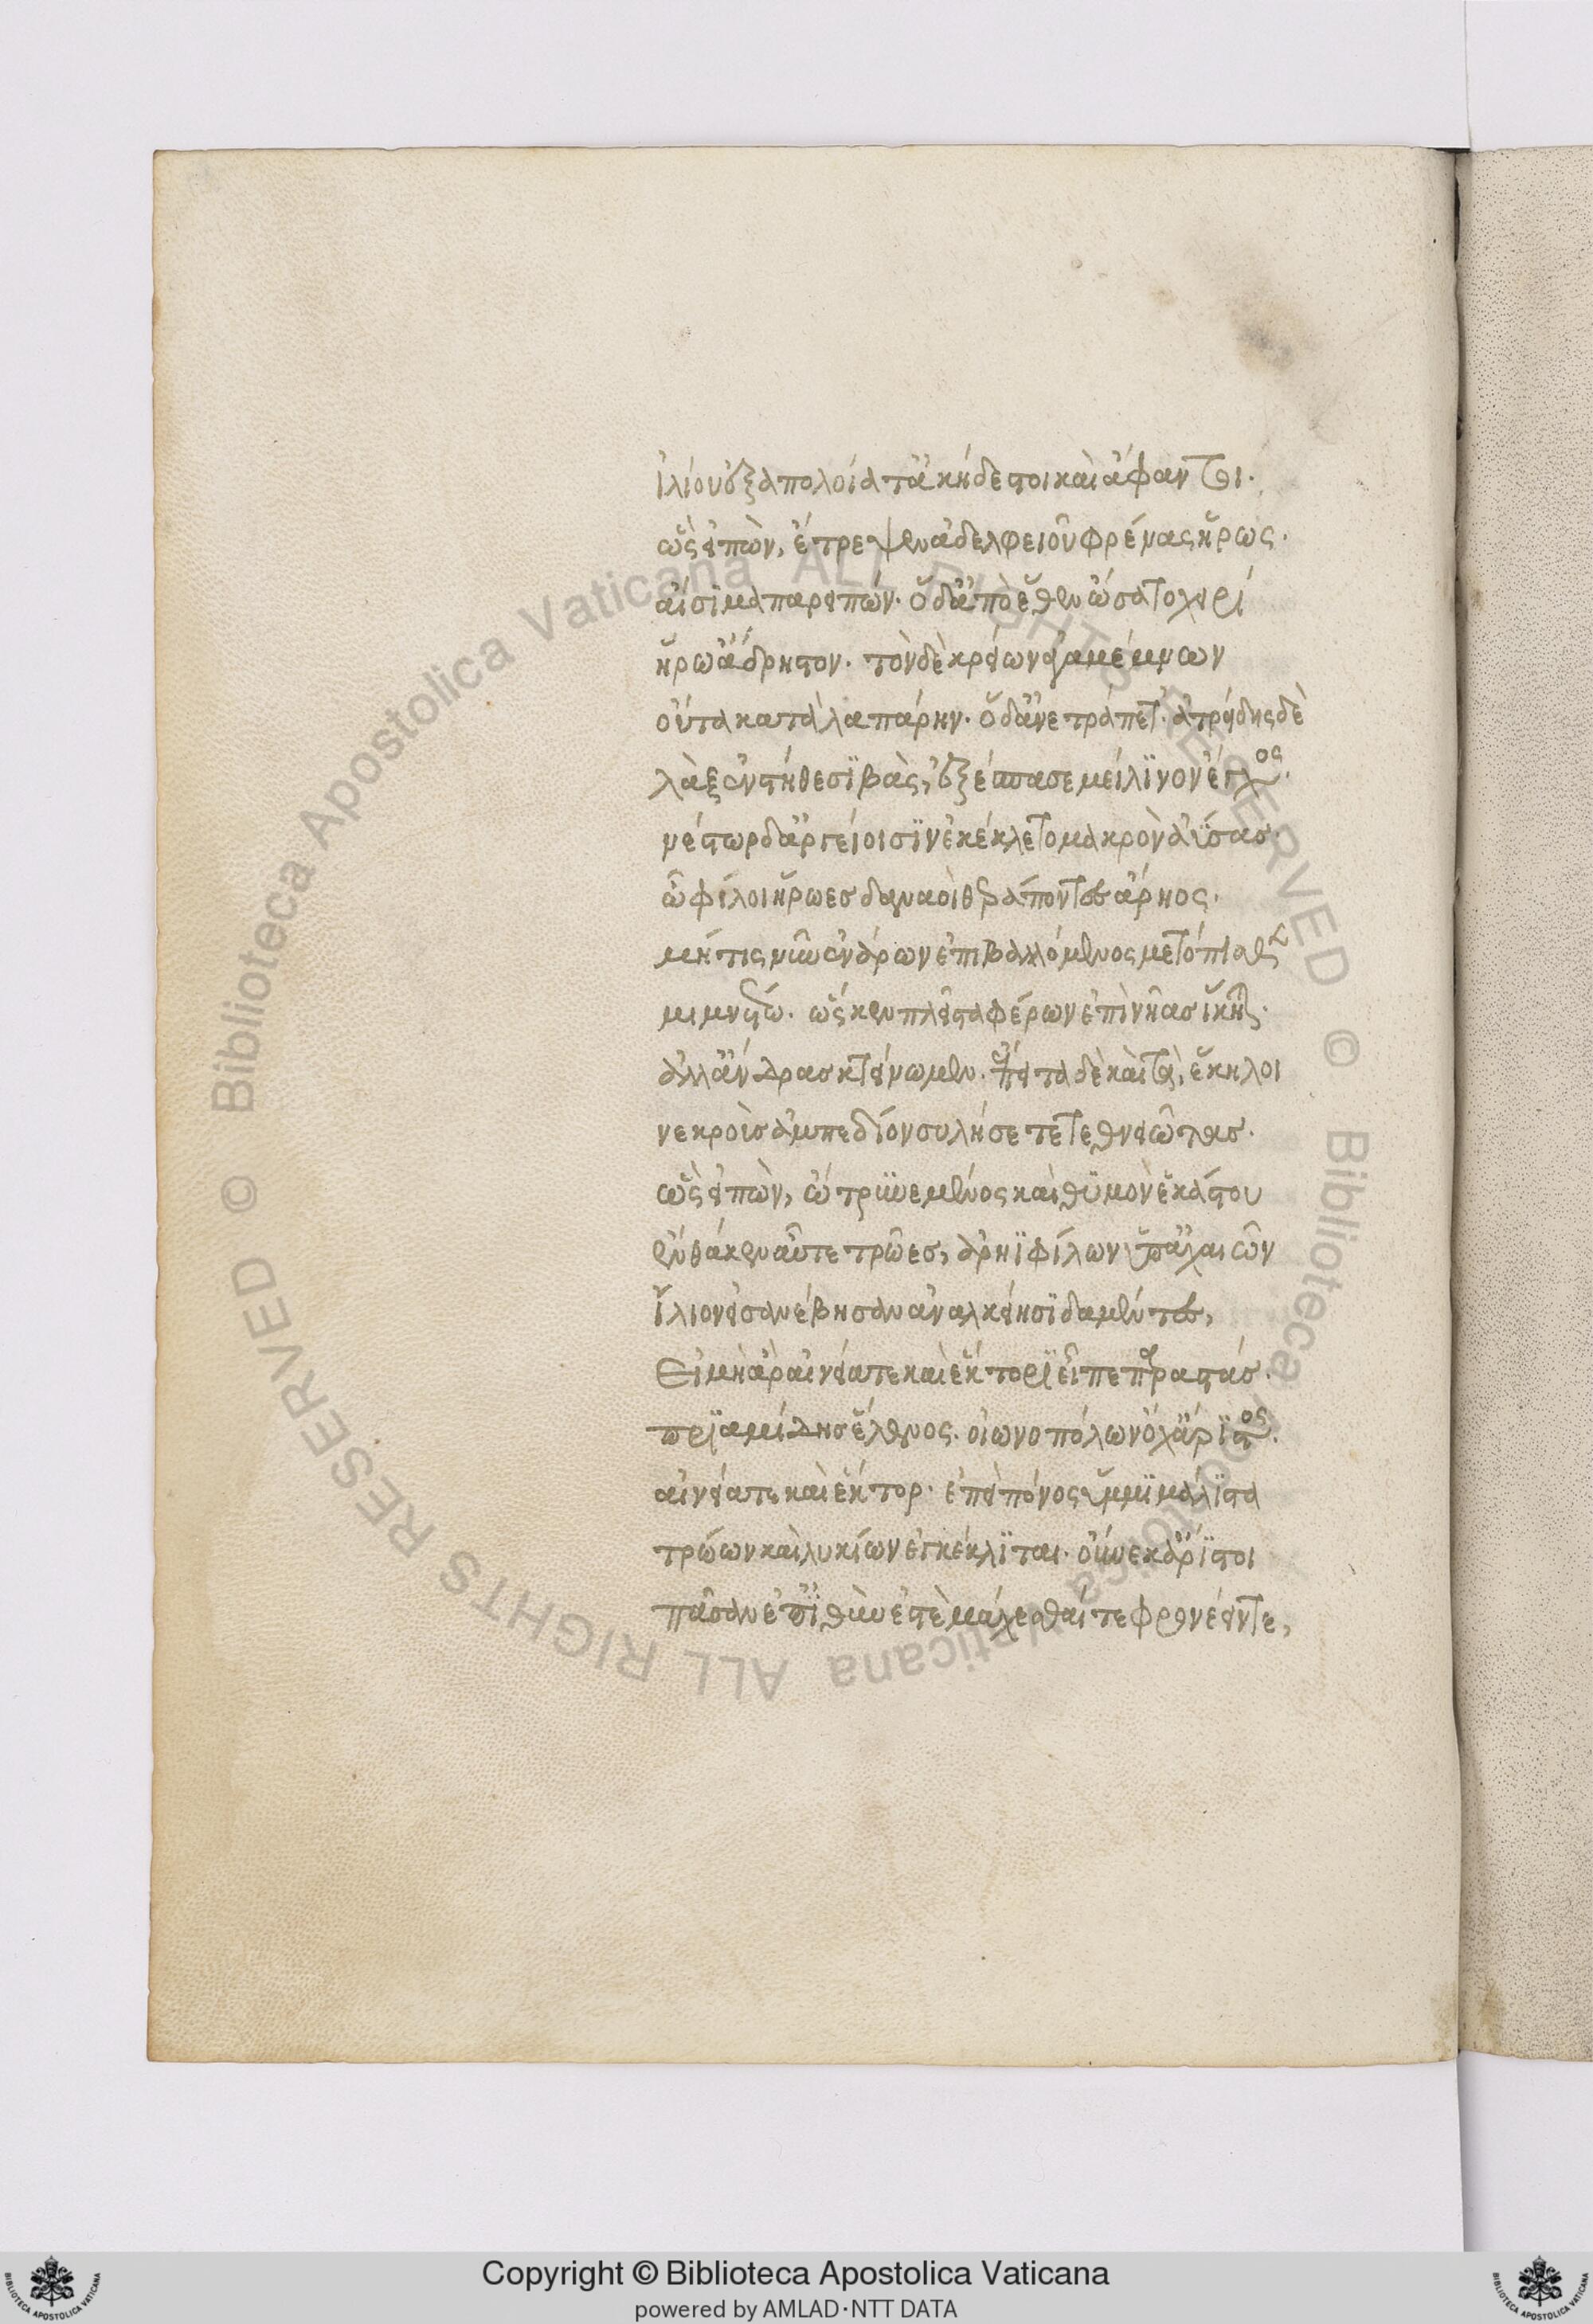 ἰλίου ἐξαπολοίατ ἀκήδεστοι καὶ ἄφαντοι.
ὣς εἰπὼν, ἔτρεψεν ἀδελφειοῦ φρένας ἥρως.
αἴσιμα παρειπών. ὃ δ ἀπὸ ἕθεν ὤσατο χειρί
ἥρω ἄδρηστον. τὸν δὲ κρείων ἀγαμέμνων
οὖτα κατὰ λαπάρην. ὃ δ ἀνετράπετ. ἀτρείδης δὲ
λὰξ ἐν στήθεσϊ βὰς, ἐξέσπασε μείλϊνον ἔγχος.
νέστωρ δ ἀργείοισϊν ἐκέκλετο μακρὸν ἀΰσας.
ὦ φίλοι ἥρωες δαναοὶ θεράποντες ἄρηος.
μή τις νῦν ἐνάρων ἐπιβαλλόμενος μετόπισθεν
μιμνέτω. ὥς κεν πλεῖστα φέρων ἐπὶ νῆας ἵκηται.
ἀλλ ἄνδρας κτείνωμεν. ἔπειτα δὲ καὶ τὰ, ἕκηλοι
νεκροὺς ἀμπεδίον συλήσετε τεθνειῶτας.
ὣς εἰπὼν, ὤτρυνε μένος καὶ θυμὸν ἑκάστου
ἔνθά κεν αὖτε τρῶες, ἀρηϊφίλων ὑπ ἀχαιῶν
ἴλιον εἰσανέβησαν ἀναλκείησϊ δαμέντες,
Εἰ μὴ ἄρ αἰνείατε καὶ ἕκτορϊ εἶπε παραστάς.
πρϊαμίδης ἕλενος. οἰωνοπόλων ὄχ ἄρϊστος.
αἰνείατε καὶ ἕκτορ. ἐπεὶ πόνος ὔμμϊ μάλϊστα
τρώων καὶ λυκίων ἐγκέκλϊται. οὕνεκ ἄρϊστοι
πᾶσαν ἐπ ἰθύν ἐστὲ μάχεσθαί τε φρονέειν τε,
Copyright © Biblioteca Apostolica Vaticana
powered by AMLAD·NTT DATA